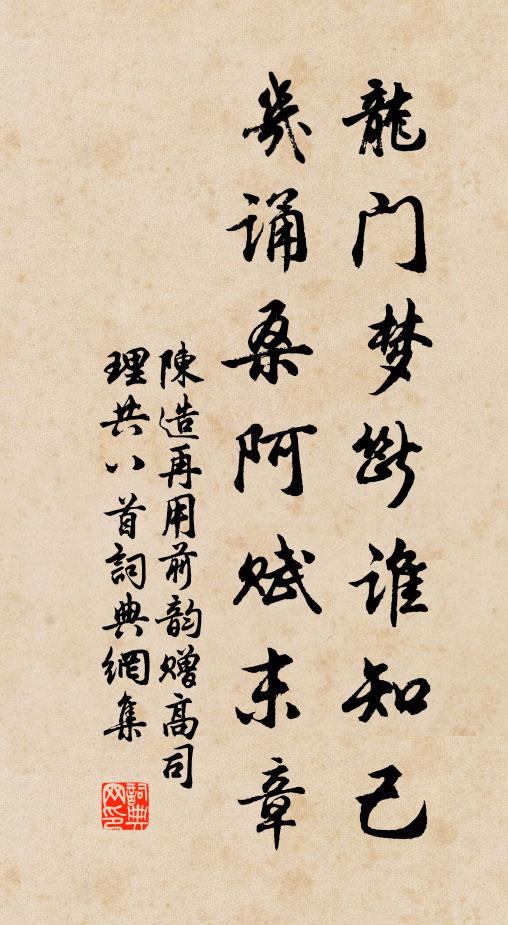 龍门梦斷谁知己
幾诵桑阿赋末章
陳造再用前韵赠高司
理共八首詞典網集
詞典网印